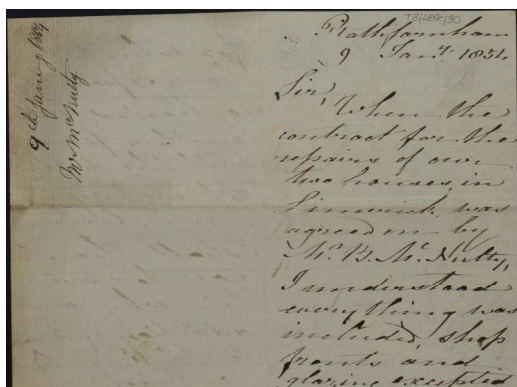 TB/LEG/90
9th Jany 1854
Mr McNulty
Rathfarnham
9 Jany. 1854
Sir,
When the
contract for the
repairs of our
two houses, in
Limerick, was
agreed on by
Mr. B. McNulty,
I understood
everything was
included, shop
fronts and
glazing excepted